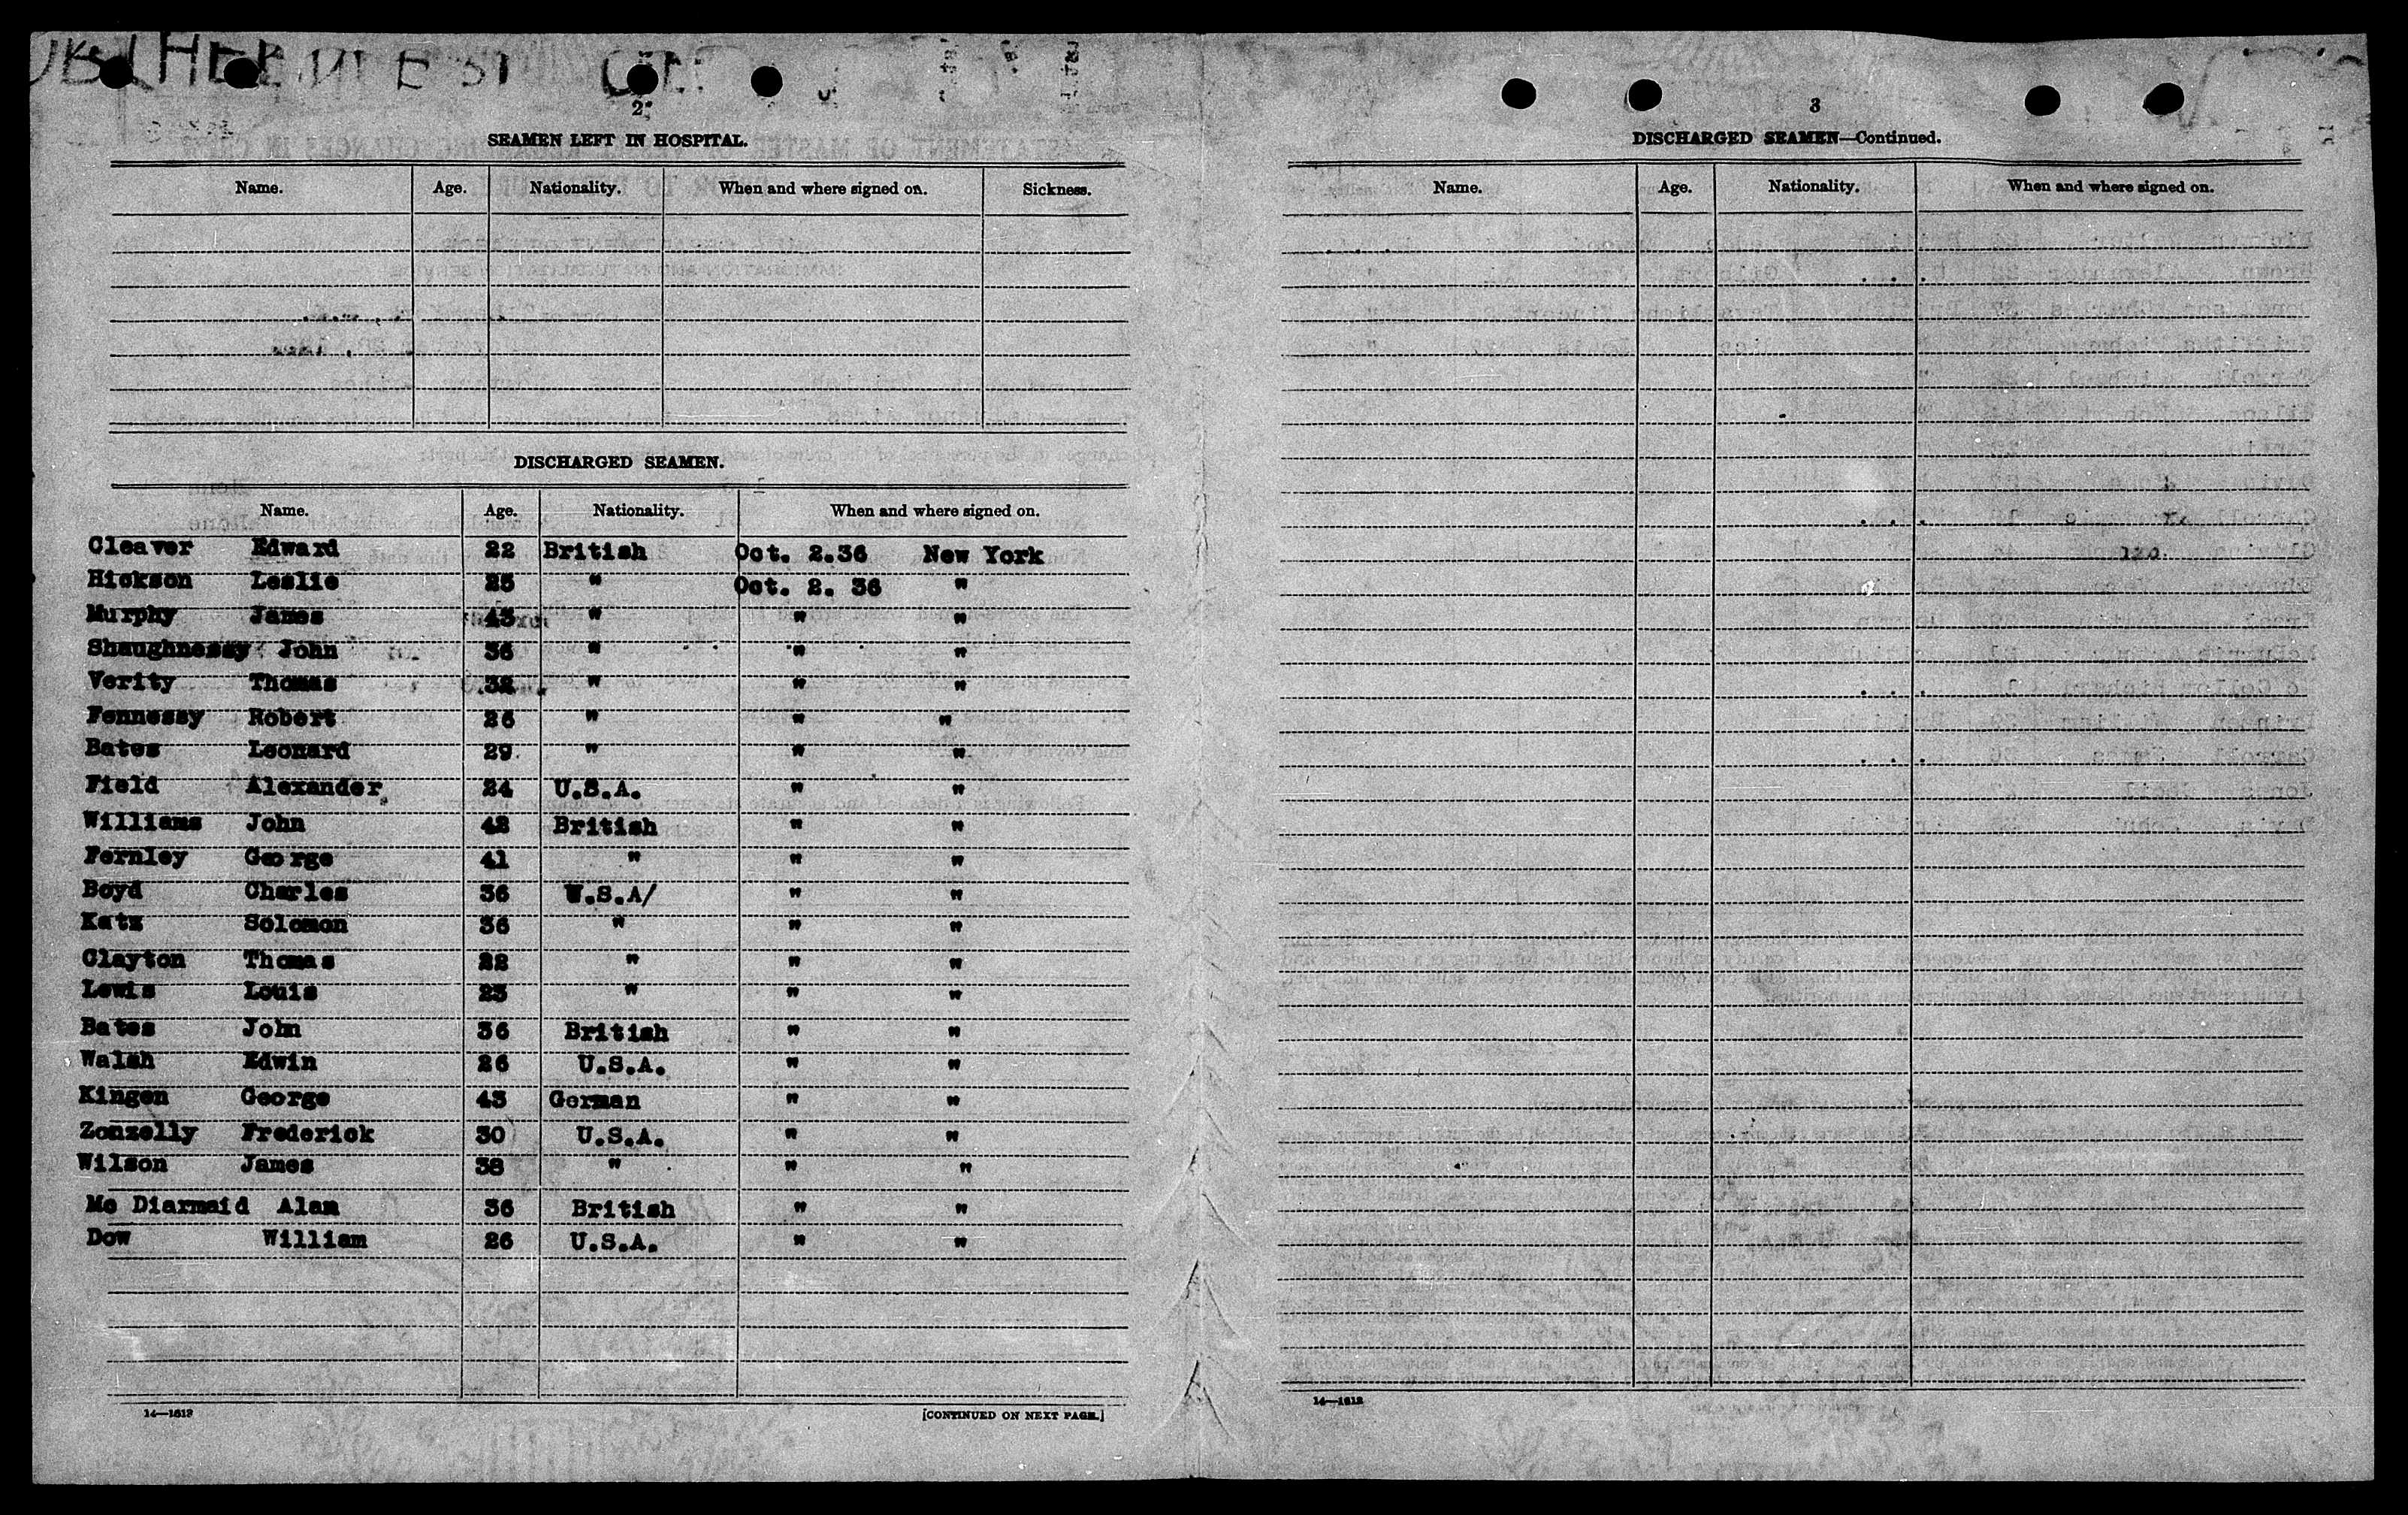 2
SEAMEN LEFT IN HOSPITAL.
Name. Age. Nationality. When and where signed on. Sickness.
DISCHARGED SEAMEN.
Name. Age. Nationality. When and where signed on.
Cleaver Edward 22 British Oct. 2.36 New York
Hickson Leslie 25 " Oct. 2. 36 "
Murphy James 43 " " "
Shaughnessy John 36 " " "
Verity Thomas 32 " " "
Fennessy Robert 26 " " "
Bates Leonard 29 " " "
Field Alexander 24 U.S.A. " "
Williams John 42 British " "
Fernley George 41 " " "
Boyd Charles 36 U.S.A/ " "
Katz Solomon 36 " " "
Clayton Thomas 22 " " "
Lewis Louis 23 " " "
Bates John 36 British " "
Walsh Edwin 26 U.S.A. " "
Kingen George 43 German " "
Zonzelly Frederick 30 U.S.A. " "
Wilson James 38 " " "
Mc Diarmaid Alan 36 British " "
Dow William 26 U.S.A. " "
14—1613
[CONTINUED ON NEXT PAGE.]
3
DISCHARGED SEAMEN—Continued.
Name. Age. Nationality. When and where signed on.
14—1613